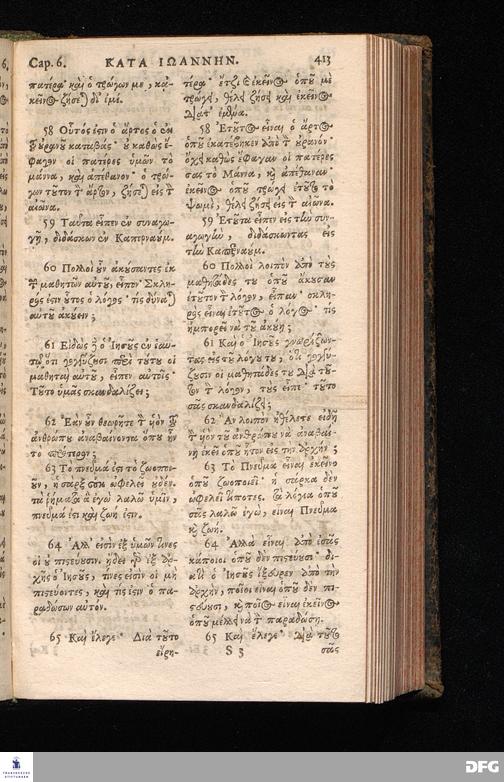 Cap. 6. ΚΑΤΑ ΙΩΑΝΝΗΝ. 413
πατέρα· καὶ ὁ τρώγων με, κἀ-
κεῖνος ζήσε) δι' ἐμέ.
58 Οὗτός ἐστιν ὁ ἄρτος ὁ ἐκ
τοῦ οὐρανοῦ καταβάς· οὐ καθὼς ἔ-
φαγον οἱ πατέρες ὑμῶν τὸ
μάννα, καὶ ἀπέθανον· ὁ τρώ-
γων τοῦτον τὸν ἄρτον, ζήσε) εἰς τὸν
αἰῶνα.
59 Ταῦτα εἶπεν ἐν συναγω-
γῇ, διδάσκων ἐν Καπερναούμ.
60 Πολλοὶ οὖν ἀκούσαντες ἐκ
τῶν μαθητῶν αὐτοῦ, εἶπον· Σκλη-
ρός ἐστιν οὗτος ὁ λόγος· τίς δύνα)
αὐτοῦ ἀκούειν;
61 Εἰδὼς δὲ ὁ Ἰησοῦς ἐν ἑαυ-
τῷ, ὅτι γογγύζουσι περὶ τούτου οἱ
μαθηταὶ αὐτοῦ, εἶπεν αὐτοῖς·
Τοῦτο ὑμᾶς σκανδαλίζει;
62 Ἐὰν οὖν θεωρῆτε τὸν υἱὸν τοῦ
ἀνθρώπου ἀναβαίνοντα ὅπου ἦν
τὸ πρότερον;
63 Τὸ πνεῦμά ἐστι τὸ ζωοποι-
οῦν, ἡ σὰρξ οὐκ ὠφελεῖ οὐδέν·
τὰ ῥήματα ἃ ἐγὼ λαλῶ ὑμῖν,
πνεῦμά ἐστι καὶ ζωή ἐστιν.
64 Ἀλλ' εἰσὶν ἐξ ὑμῶν τινες
οἳ οὐ πιστεύουσιν, ᾔδει γὰρ ἐξ ἀρ-
χῆς ὁ Ἰησοῦς, τίνες εἰσὶν οἱ μὴ
πιστεύοντες, καὶ τίς ἐστιν ὁ πα-
ραδώσων αὐτόν.
65 Καὶ ἔλεγε· Διὰ τοῦτο
εἴρη-
τέρα· ἔτζι καὶ ἐκεῖνος ὁποῦ μὲ
τρώγει, θέλει ζήσει καὶ ἐκεῖνος
διατ' ἐμένα.
58 Ἐτοῦτος εἶναι ὁ ἄρτος
ὁποῦ ἐκατέβηκεν ἀπὸ τὸν οὐρανόν·
ὄχι καθὼς ἔφαγαν οἱ πατέρες
σας τὸ Μάννα, καὶ ἀπέθαναν·
ἐκεῖνος ὁποῦ τρώγει ἐτοῦτο τὸ
ψωμὶ, θέλει ζήσει εἰς τὸν αἰῶνα.
59 Ἐτοῦτα εἶπεν εἰς τὴν συν-
αγωγὴν, διδάσκωντας εἰς
τὴν Καπερναούμ.
60 Πολλοὶ λοιπὸν ἀπὸ τοὺς
μαθητάδες του ὁποῦ ἄκουσαν
ἐτοῦτον τὸν λόγον, εἶπαν· σκλη-
ρὸς εἶναι ἐτοῦτος ὁ λόγος· τίς
ἠμπορεῖ νὰ τοῦ ἀκούῃ;
61 Καὶ ὁ Ἰησοῦς γνωρίζων-
τας εἰς τοῦ λόγου του, ὅτι γογγύ-
ζουσιν οἱ μαθητάδες του διὰ τοῦ-
τον τὸν λόγον, τοὺς εἶπε· τοῦτο
σᾶς σκανδαλίζει;
62 Ἂν λοιπὸν ἠθέλετε εἰδῆ
τὸν υἱὸν τοῦ ἀνθρώπου νὰ ἀναβαί-
νῃ ἐκεῖ ὁποῦ ἦτον εἰς τὴν ἀρχήν;
63 Τὸ Πνεῦμα εἶναι ἐκεῖνο
ὁποῦ ζωοποιεῖ· ἡ σάρκα δὲν
ὠφελεῖ τίποτες. τὰ λόγια ὁποῦ
σᾶς λαλῶ ἐγὼ, εἶναι Πνεῦμα
καὶ ζωή.
64 Ἀλλὰ εἶναι ἀπὸ ἐσᾶς
κάποιοι ὁποῦ δὲν πιστεύουσι· δι-
ατὶ ὁ Ἰησοῦς ἤξευρεν ἀπὸ τὴν
ἀρχὴν, ποῖοι εἶναι ὁποῦ δὲν πι-
στεύουσι, καὶ ποῖος εἶναι ἐκεῖνος
ὁποῦ μέλλει νὰ τὸν παραδώσῃ.
65 Καὶ ἔλεγε· Διὰ τοῦτο
S 3 σᾶς
FRANCKESCHE STIFTUNGEN
DFG